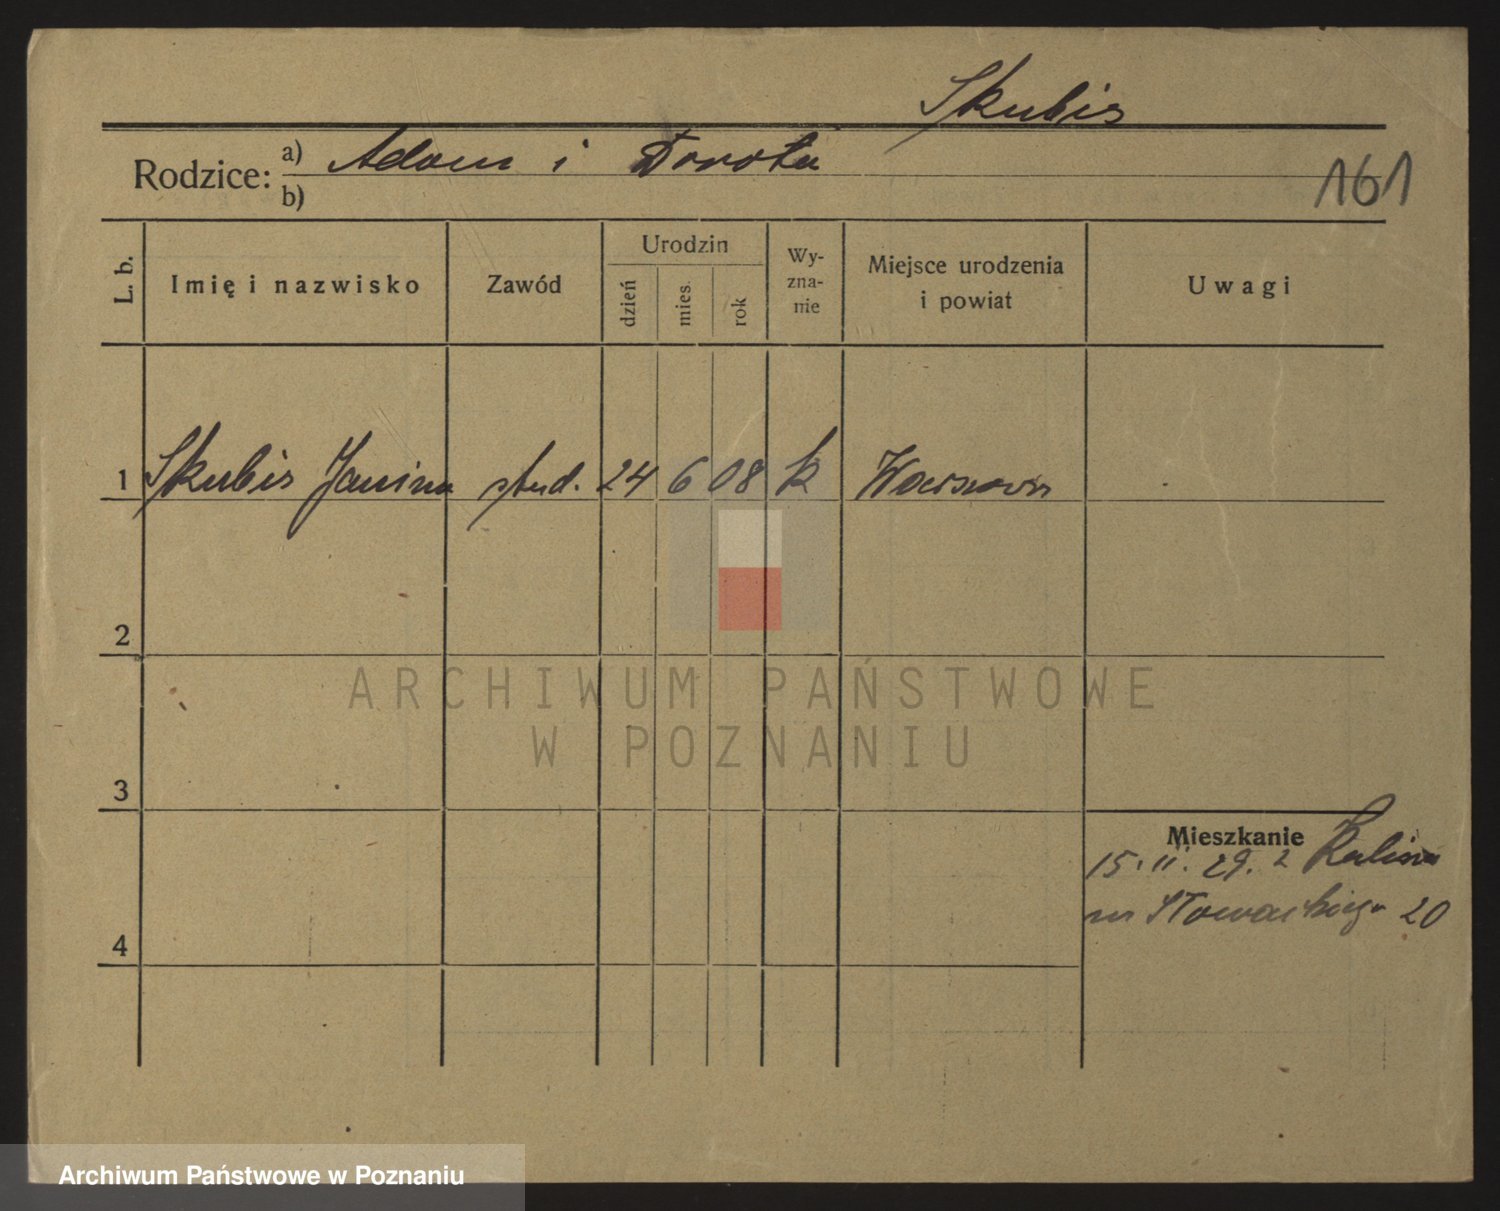 Skubis
Rodzice: a) Adam i Dorota
b)
161
L. b.
Imię i nazwisko
Zawód
Urodzin
dzień
mies.
rok
Wy-
zna-
nie
Miejsce urodzenia
i powiat
Uwagi
1 Skubis Janina stud. 24 6 08 k Warszawa
2
3
4
Mieszkanie
15. II. 29. z Kalisza
Słowackiego 20
ARCHIWUM PAŃSTWOWE
W POZNANIU
Archiwum Państwowe w Poznaniu